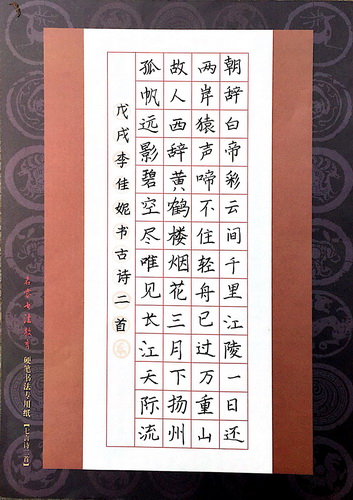 朝辞白帝彩云间千里江陵一日还
两岸猿声啼不住轻舟已过万重山
故人西辞黄鹤楼烟花三月下扬州
孤帆远影碧空尽唯见长江天际流
戊戌李佳妮书古诗二首
硬笔书法专用纸【七言诗二首】